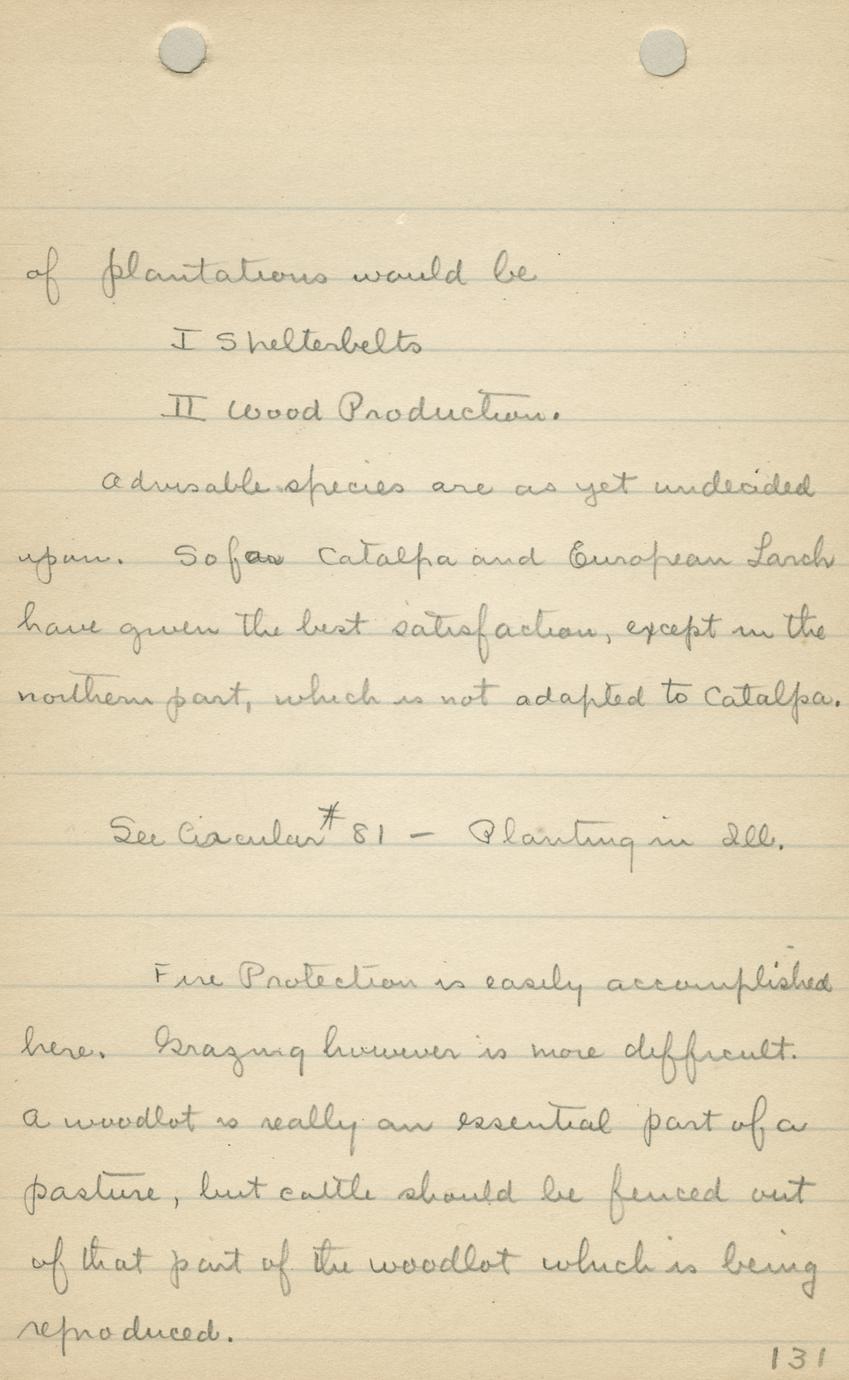 of plantations would be
I Shelterbelts
II Wood Production.
Advisable species are as yet undecided
upon. Sofar Catalpa and European Larch
have given the best satisfaction, except in the
northern part, which is not adapted to Catalpa.
See Circular #81 — Planting in Ill.
Fire Protection is easily accomplished
here. Grazing however is more difficult.
A woodlot is really an essential part of a
pasture, but cattle should be fenced out
of that part of the woodlot which is being
reproduced.
131